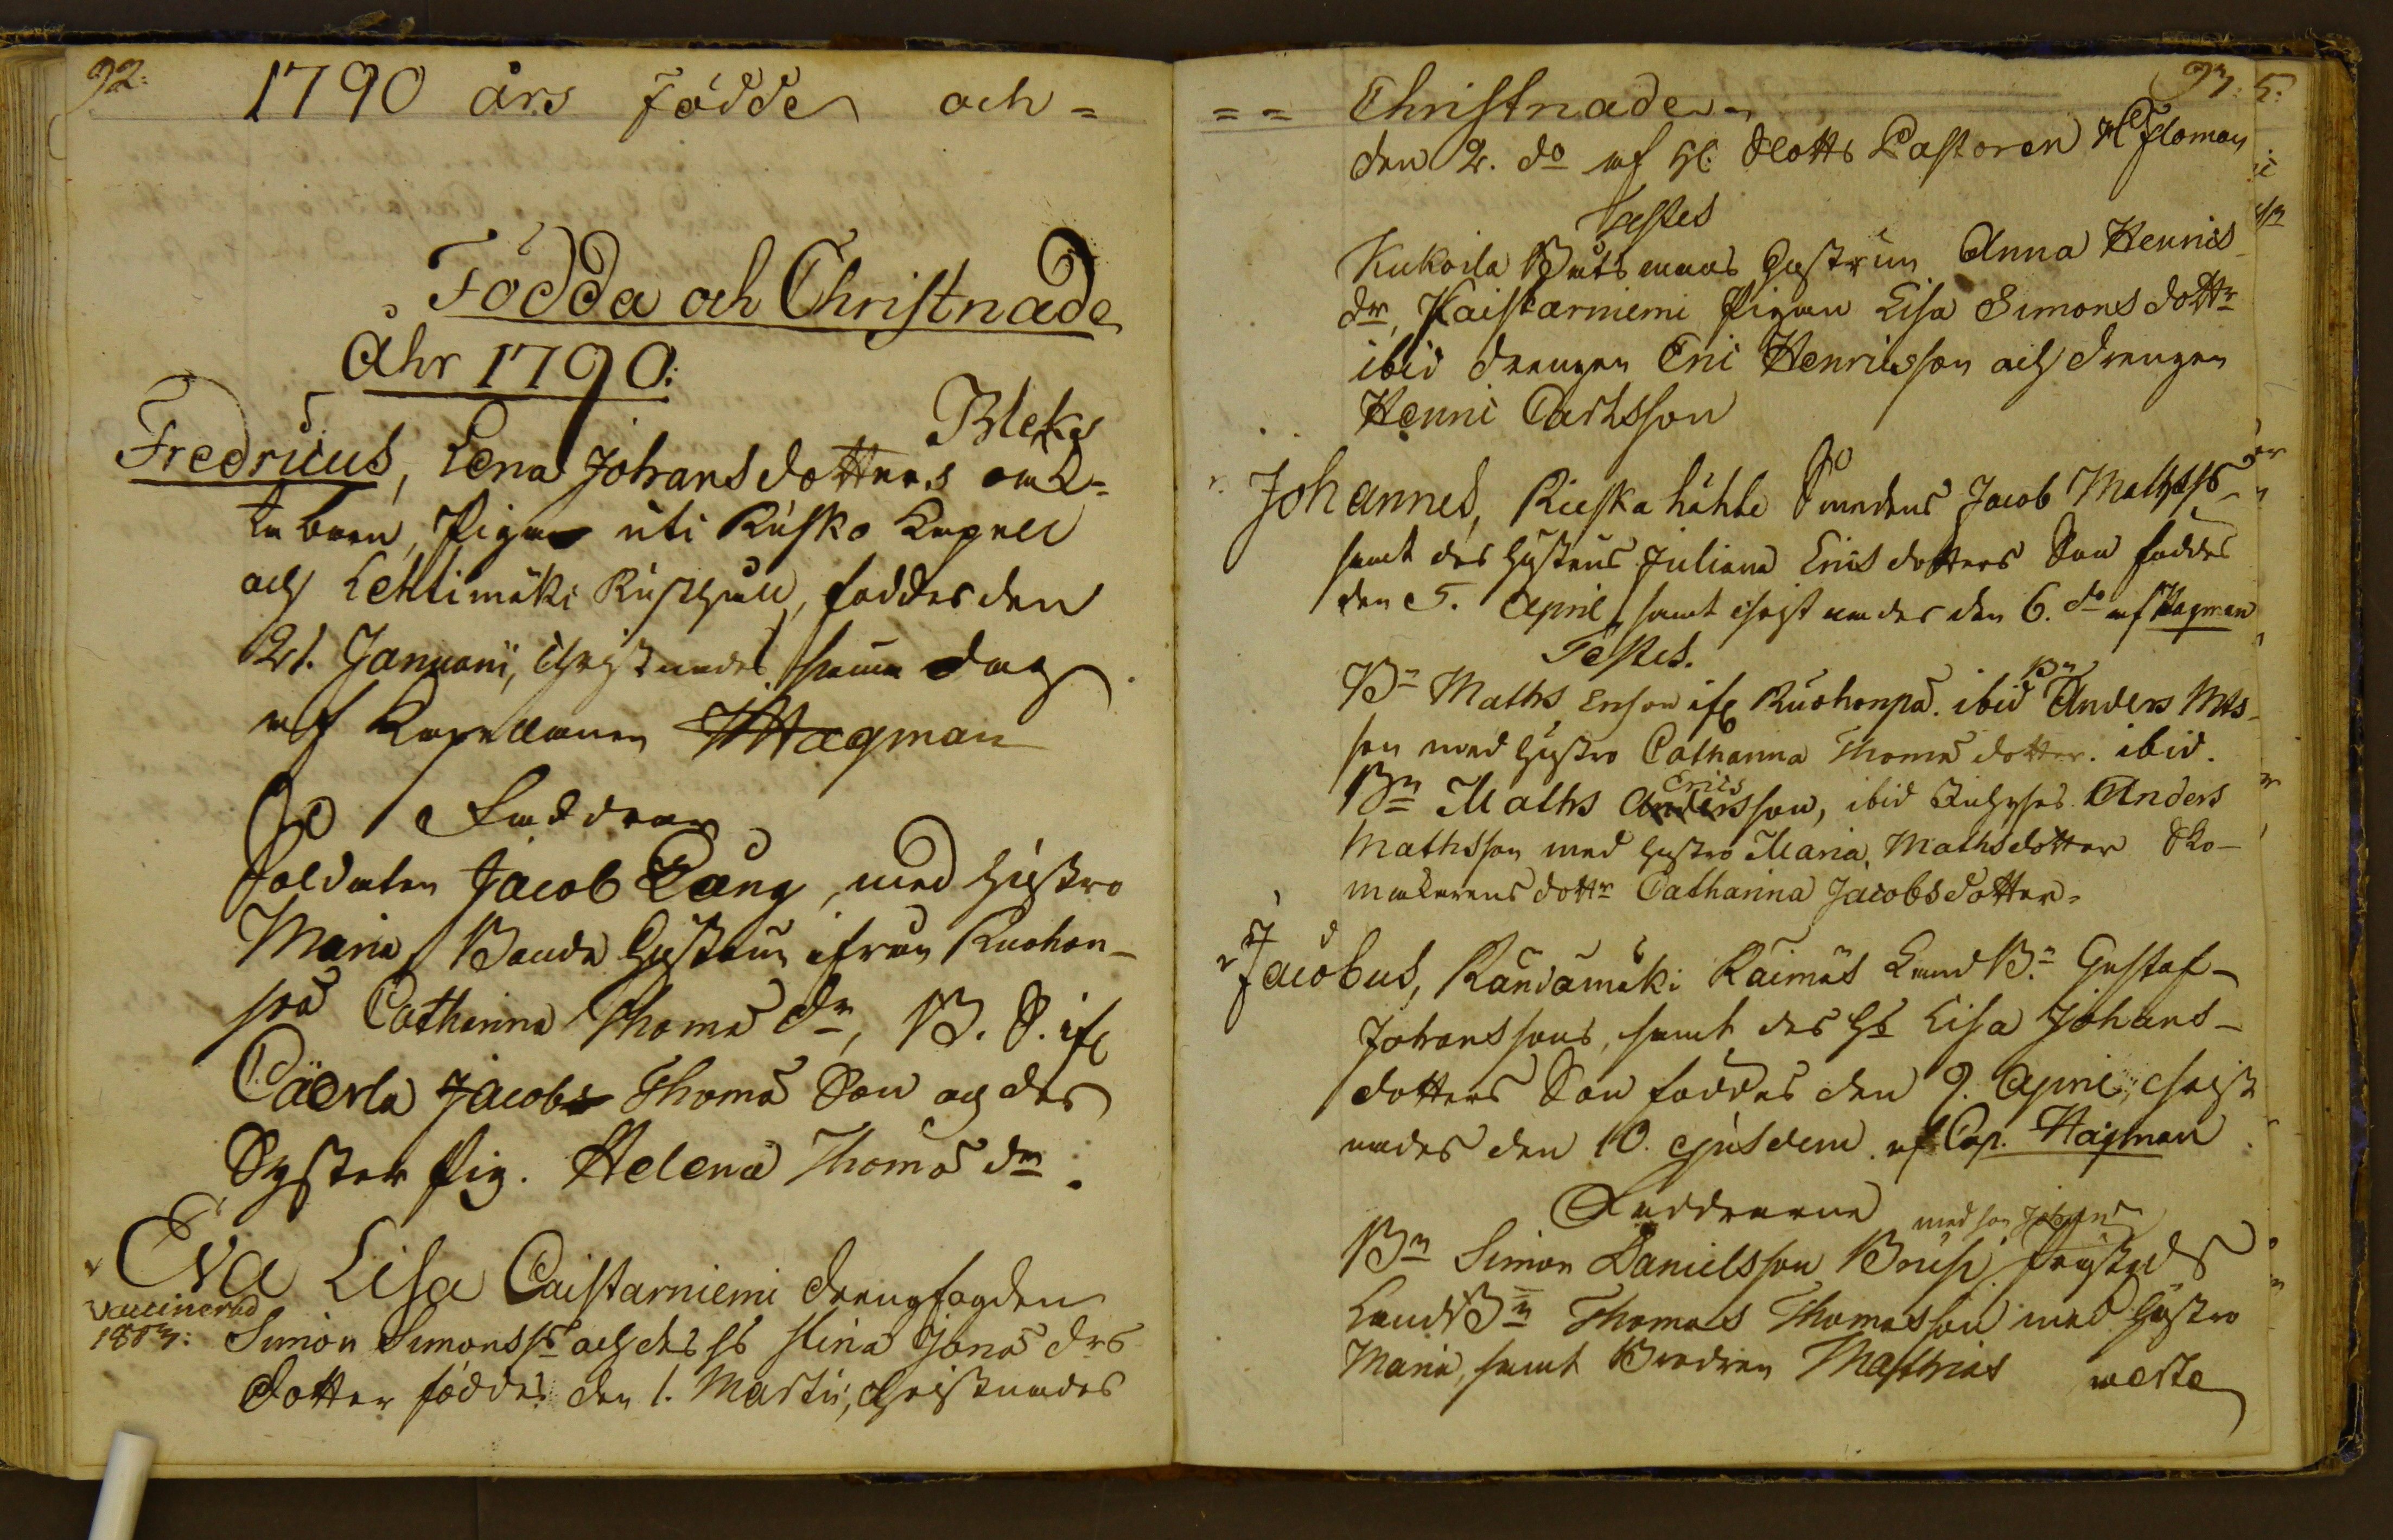 92:
1790 års födde och =
Födda och Christnade
Åhr 1790:
Bleka
Fredricus, Lena Johansdotters oäk-
ta barn, Pigan uti Rusko Capell
och Lehtimäki Rusthåll, föddes den
21. Januarii, Christnades samma dag
af Kapellanen Hagman
Faddrar
Soldaten Jacob Lång, med hustro
Maria, Bonde hustrun ifrån Ruohon-
pä Catharina Thomæ dr, B. S. ifr
Cäerla Jacob Thomæ Son och des
Syster pig. Helena Thomæ dr.
Eva Lisa Caistarniemi drengfogden
Vaccinerad
1803:
Simon Simonss och des hs Stina Jonæ drs
dotter föddes den 1. Martii, Christnades
= = Christnade
93:
den 2. do af hl Slotts Pastoren H Floman
Testes
Kukoila Båtsmans hustrun Anna Henrics
dr, Kaistarniemi Pigan Lisa Simonsdottr
ibid drengen Eric Henricsson och drengen
Henric Carlsson
Johannes, Rieskalähte Smedens Jacob Mathss
samt des hustrus Juliana Ericsdotters Son föddes
den 5. April, samt christnades den 6. do af Hagman
Testes.
Bn Maths Erson ifr Ruohonpä. ibid Bn Anders Mts-
son med hustro Catharina Thomædotter. ibid.
Erics
Bn Maths Andersson, ibid Anders
Mathsson med hustro Maria Mathsdotter Sko-
makarens dottr Catharina Jacobsdotter.
Jacobus, Randamäki Raimäs Land Bn Gustaf
Johanssons, samt des hs Lisa Johans-
dotters Son föddes den 9. April, christ
nades den 10. ejusdem af Cap. Hagman
Faddrarne
med son Johan
Bn Simon Danielsson Brusi
Land Bn Thomas Thomasson med hustro
Maria, samt Brodren Matthias
verte